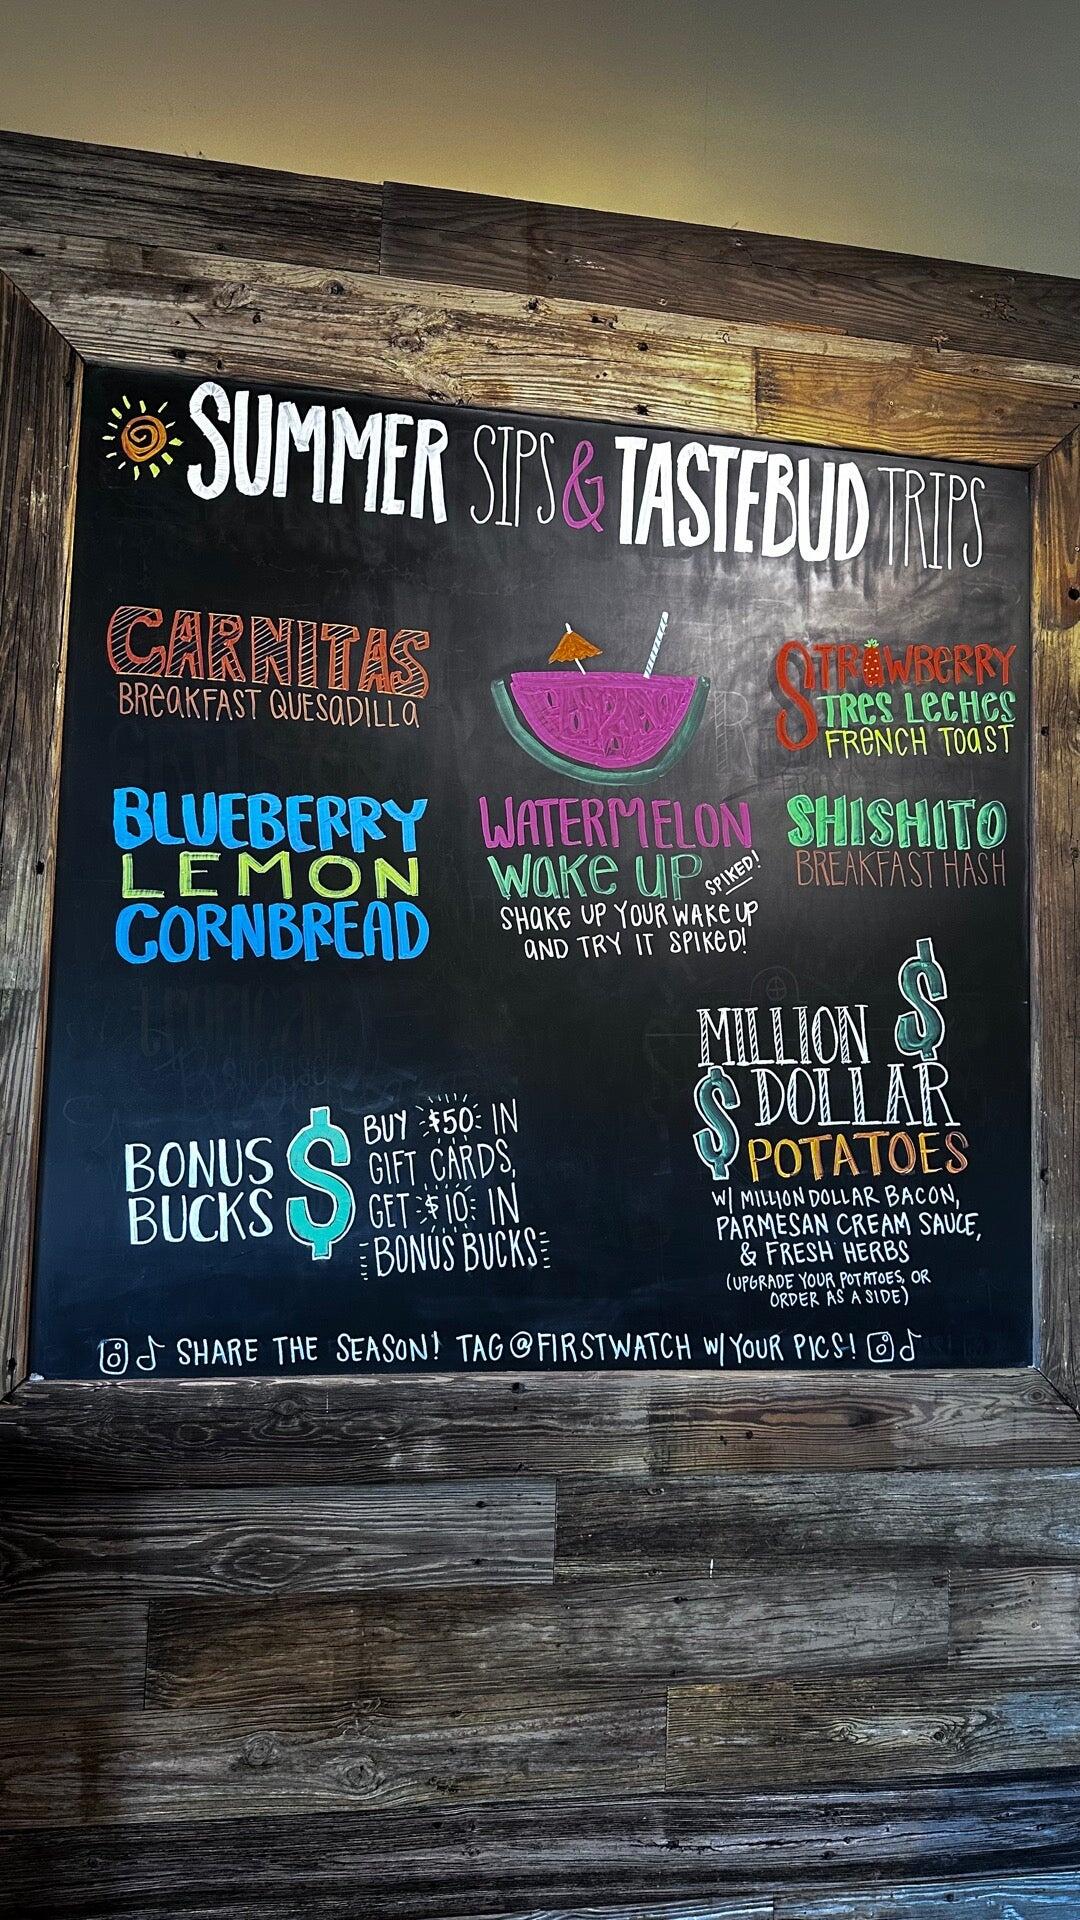 SUMMER SIPS & TASTEBUD TRIPS
CARNITAS
BREAKFAST QUESADILLA
BLUEBERRY
LEMON
CORNBREAD
WATERMELON
WAKE UP SPIKED!
SHAKE UP YOUR WAKE UP
AND TRY IT SPIKED!
STRAWBERRY
TRES LECHES
FRENCH TOAST
SHISHITO
BREAKFAST HASH
BONUS
BUCKS
$
BUY $50 IN
GIFT CARDS,
GET $10 IN
BONUS BUCKS
MILLION $
$ DOLLAR
POTATOES
W/ MILLION DOLLAR BACON,
PARMESAN CREAM SAUCE,
& FRESH HERBS
(UPGRADE YOUR POTATOES, OR
ORDER AS A SIDE)
SHARE THE SEASON! TAG @FIRSTWATCH W/ YOUR PICS!